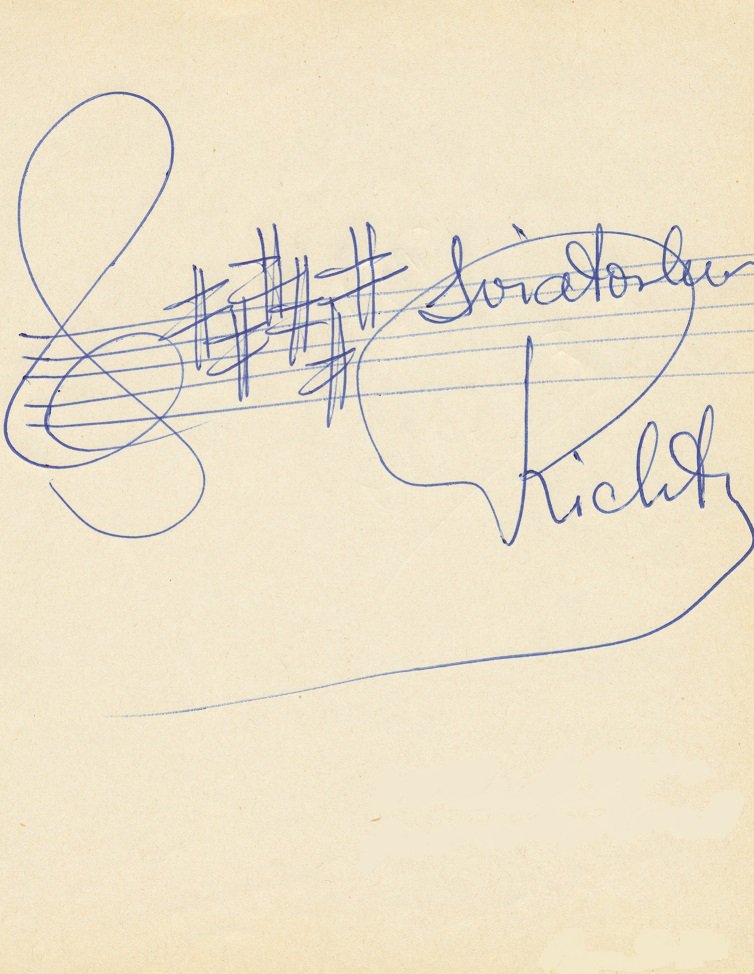 Sviatoslav
Richter